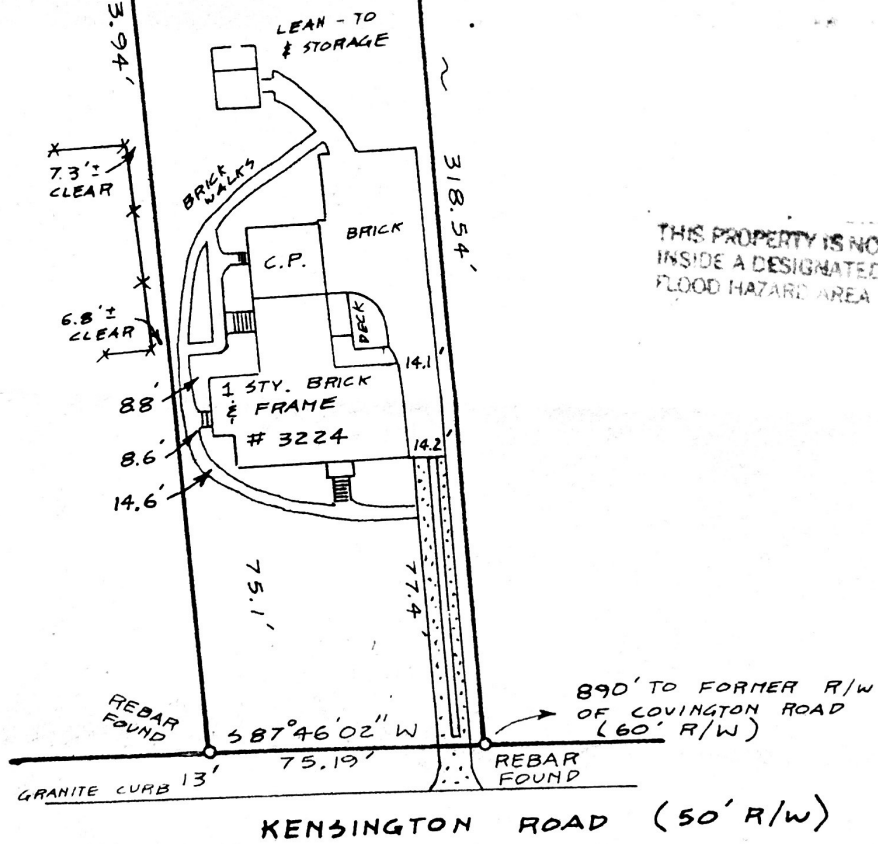 3.94'
LEAN - TO
& STORAGE
~
7.3'±
CLEAR
BRICK
WALKS
318.54'
BRICK
C.P.
THIS PROPERTY IS NO
INSIDE A DESIGNATED
FLOOD HAZARD AREA
6.8'±
CLEAR
DECK
14.1'
8.8'
1 STY. BRICK
& FRAME
# 3224
8.6'
14.2'
14.6'
75.1'
77.4'
REBAR
FOUND
S 87°46'02" W
75.19'
890' TO FORMER R/W
OF COVINGTON ROAD
(60' R/W)
REBAR
FOUND
GRANITE CURB 13'
KENSINGTON ROAD (50' R/W)